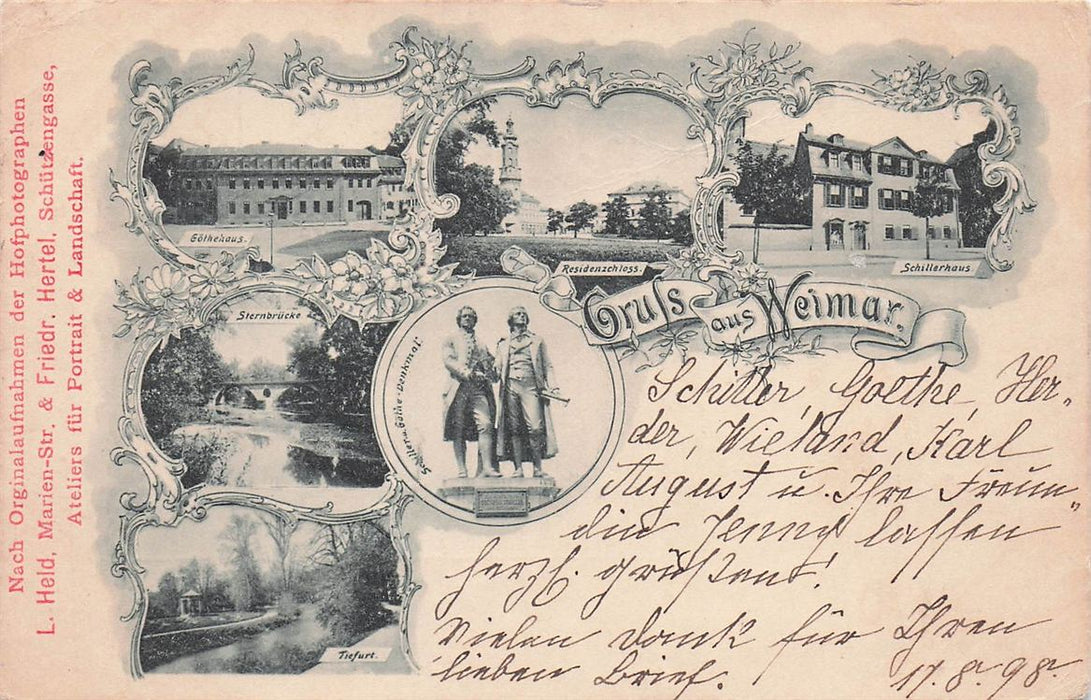 Nach Orginalaufnahmen der Hofphotographen
L. Held, Marien-Str. & Friedr. Hertel, Schützengasse,
Ateliers für Portrait & Landschaft.
Göthehaus.
Residenzchloss.
Schillerhaus
Gruß aus Weimar.
Sternbrücke
Schiller u. Göthe-Denkmal.
Tiefurt.
Schiller, Goethe, Her-
der, Wieland, Karl
August u. Ihre Freun-
din Jenny lassen
herzl. grüßen!
Vielen Dank für Ihren
lieben Brief. 17.8.98.